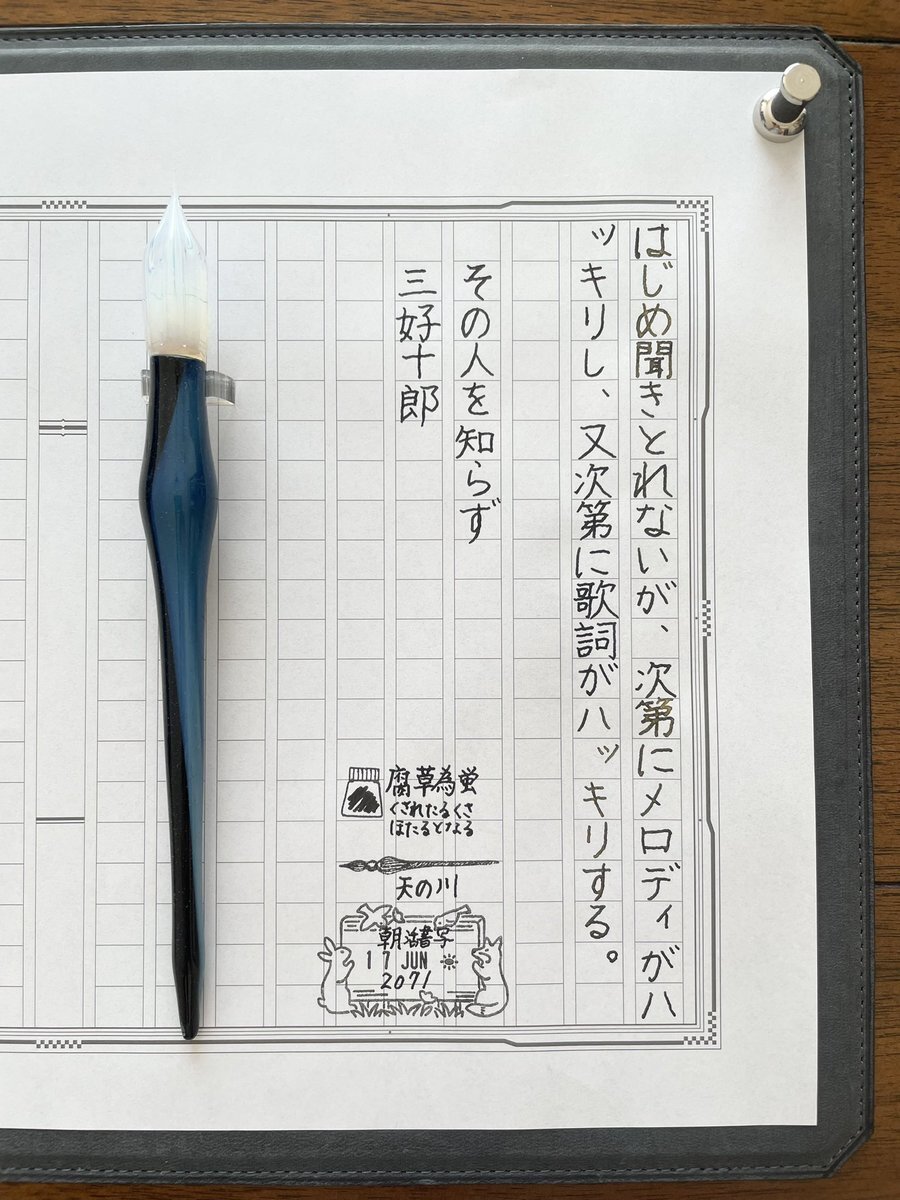 はじめ聞きとれないが、次第にメロディがハ
ッキリし、又次第に歌詞がハッキリする。
その人を知らず
三好十郎
腐草為蛍
くされたるくさ
ほたるとなる
天の川
朝活書写
17 JUN
2071